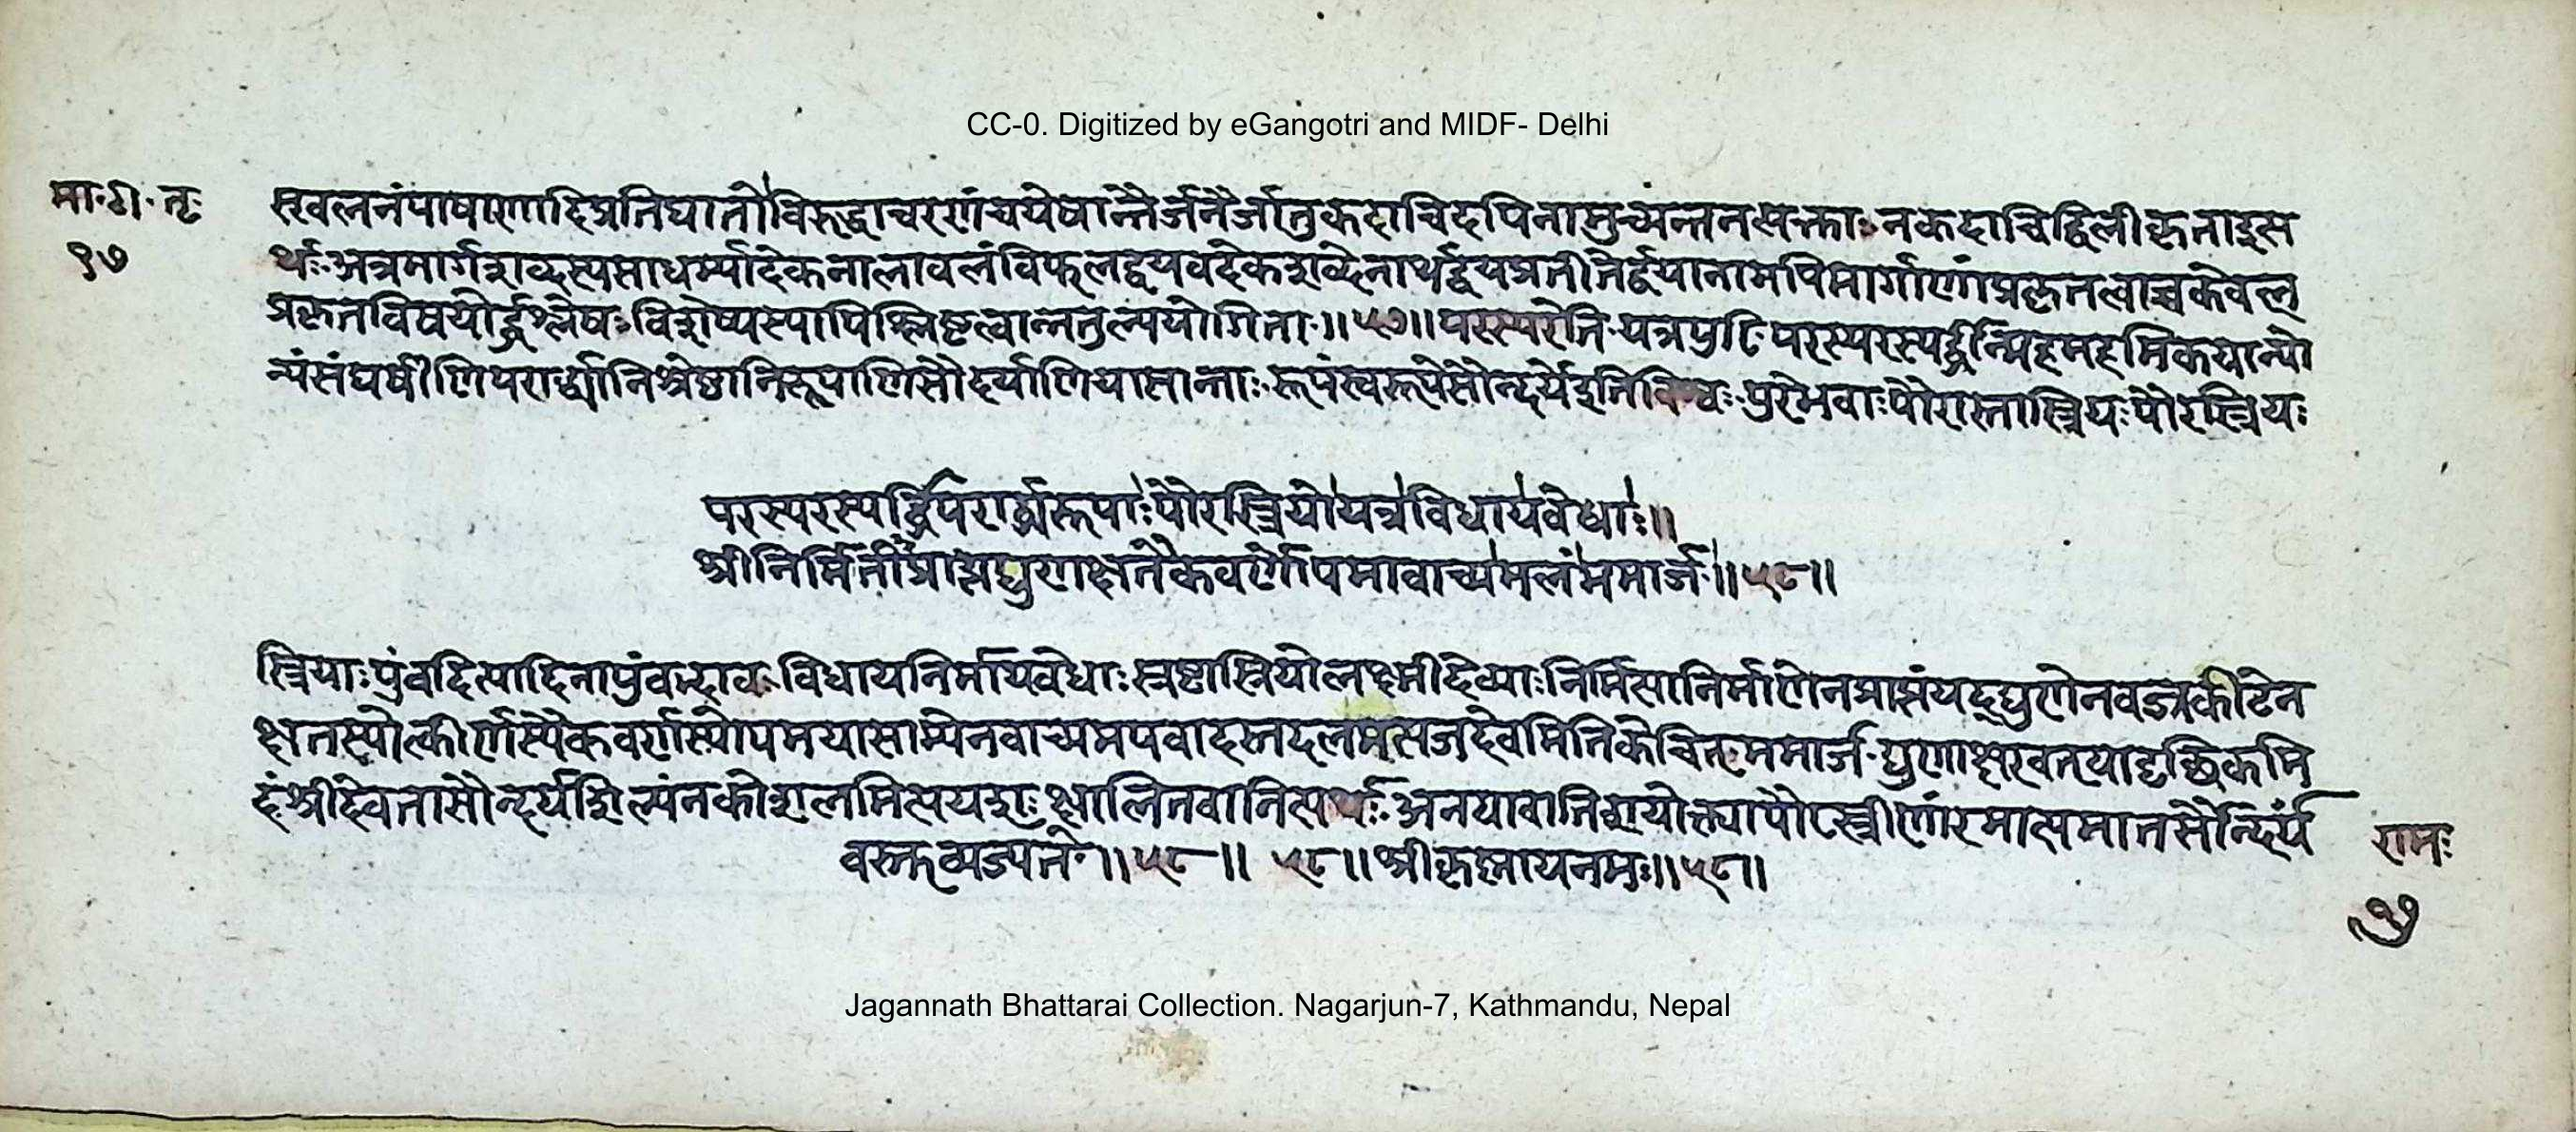 CC-0. Digitized by eGangotri and MIDF- Delhi
मा. टी. तृ
१७
स्खलनंपाषाणादिप्रतिघातौविरुद्धाचरणंचयेषान्तैर्जनैर्जातुकदाचिदपिनामुच्यन्तनसक्ताः नकदाचिद्विलीकृताइस
र्थः अत्रमार्गशब्दस्यसाधर्म्यादेकनालावलंविफलद्वयवदेकशब्देनार्थद्वयप्रतीतेर्द्वयानामपिमार्गाणांप्रकृतत्वाच्चकेवल
प्रकृतविषयोर्द्धश्लेषः विशेष्यस्यापिश्लिष्टत्वान्नतुल्ययोगिता ॥ ५७ ॥ परस्परेति यत्रपुरि परस्परस्पर्द्धीन्यिहमहमिकयान्यो
न्यंसंघर्षीणिपरार्द्ध्यानिश्रेष्ठानिरूपाणिसौदर्याणियासान्ताः रूपंस्वरूपेसौन्दर्येइतिविश्वः पुरेभवाःपौरास्तास्त्रियः पौरस्त्रियः
परस्परस्पर्द्धिपरार्द्ध्यरूपाःपौरस्त्रियोयत्रविधायवेधाः ॥
श्रीनिर्मितीप्राप्तघुणाक्षतैकवर्णोपमावाच्यमलंममार्ज ॥ ५८ ॥
स्त्रियाः पुंवदित्यादिनापुंवद्भावः विधायनिर्मायवेधाः स्त्रष्टास्त्रियोलक्ष्मीदेव्याः निर्मिसानिर्माणेनप्राप्तंयद्घुणेनवज्रकीटेन
क्षतस्योत्कीर्णस्यैकवर्णस्योपमयासाम्येनवाच्यमपवादस्तदलमत्सजदेवमितिकेचित् ममार्ज घुणाक्षरवतयादृच्छिकमि
दंश्रीदेवतासौन्दर्यशिल्पंनकौशलमित्ययशः क्षालितवानित्यर्थः अनयावातिशयोक्त्यापौरस्त्रीणांरमासमानसौन्दिर्यं
वस्तव्यज्यते ॥ ५८ ॥ ५८ ॥ श्रीकृष्णायनमः ॥ ५८ ॥
रामः
१७
Jagannath Bhattarai Collection. Nagarjun-7, Kathmandu, Nepal